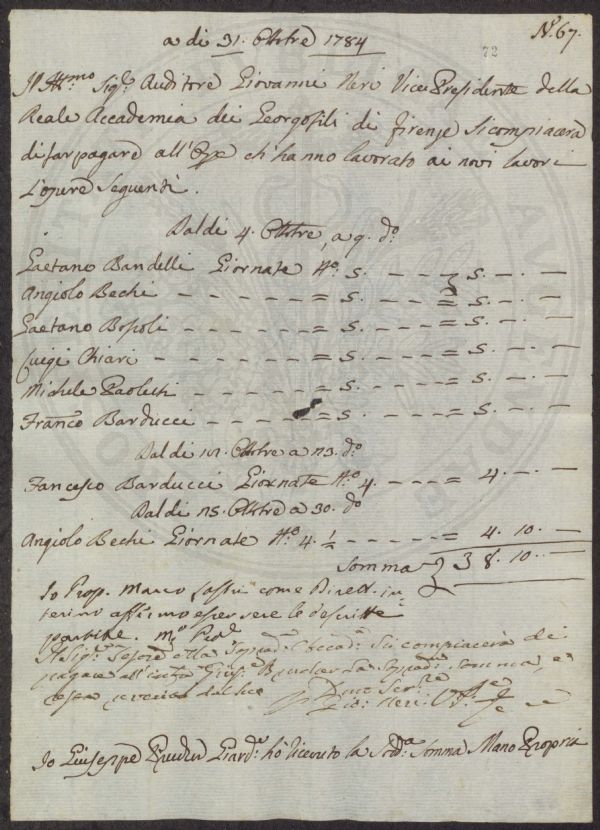 Nº. 67.
a di 31. Ottbre 1784
72
Il Ill.mo Sigr. Auditore Giovanni Neri Vice Presidente della
Reale Accademia dei Georgofili di firenze Si compiacerà
di far pagare all' Ope ch' hanno lavorato ai novi lavori
L'opere Seguenti.
Dal di 4. Ottbre, a 9. do.
Gaetano Bandelli Giornate Nº. 5. - - - = 5. - . -
Angiolo Bechi - - - - - = 5. - - - = 5. - . -
Gaetano Bopoli - - - - - = 5. - - - = 5. - . -
Luigi Chiari - - - - - = 5. - - - = 5. - . -
Michele Paoletti - - - - - = 5. - - - = 5. - . -
Franco Barducci - - - - = 5. - - - = 5. - . -
Dal di 11. Ottbre a 13. do
Fancesco Barducci Giornate Nº. 4. - - - = 4. - . -
Dal di 15. Ottbre a 30. do
Angiolo Bechi Giornate Nº. 4. 1/2 - - - - = 4. 10. -
Somma } 38. 10. -
Io Prop. Marco come Dirett. in
terino affirmo esser vere le descritte
partite. mo Pro
Il Sigr. Tesore della Accad. Si compiacerà di
pagare all' Gius. la Somma, e
Gio. Neri
Io Giuseppe Giard. hò ricevuto la Sud.a Somma Mano Propria